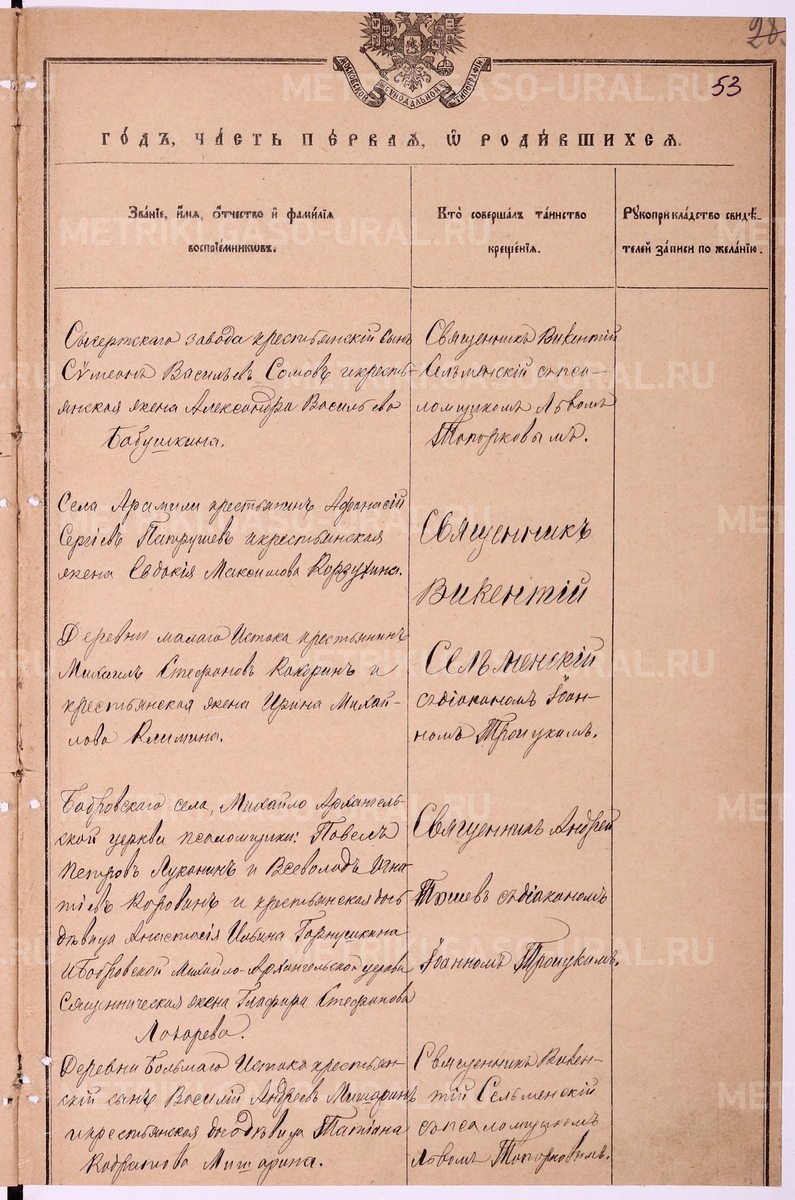 28.
53
МОСКОВСКОЙ СѴНОДАЛЬНОЙ ТИПОГРАФІИ
METRIKI.GASO-URAL.RU
ГОДЪ, ЧАСТЬ ПЕРВАЯ, Ѡ РОДИВШИХСЯ.
Званіе, имя, отчество и фамилія
воспріемниковъ.
Кто совершалъ таинство
крещенія.
Рукоприкладство свидѣ-
телей записи по желанію.
Сысертскаго завода крестьянскій сынъ
Сѵмеонъ Васильевъ Сомовъ и кресть-
янская жена Александра Васильева
Бабушкина.
Священникъ Викентій
Сельменскій съ пса-
ломщикомъ Львомъ
Топорковымъ.
Села Арамили крестьянинъ Афанасій
Сергіевъ Патрушев и крестьянская
жена Евдокія Максимова Корзухина.
Деревни малаго Истока крестьянинъ
Михаилъ Стефановъ Какоринъ и
крестьянская жена Ирина Михай-
лова Климина.
Священникъ
Викентій
Сельменскій
съ діакономъ Іоан-
номъ Троицкимъ.
Бобровскаго села, Михайло Архангель-
ской церкви псаломщики: Павелъ
Петровъ Луканинъ и Всеволодъ Игна
тіевъ Корованъ и крестьянская дочь
дѣвица Анастасія Ильина Горнушкина
и Бобровской Михайло-Архангельской церкви
священническая жена Глафира Стефанова
Священникъ Андрей
съ діакономъ
Іоанномъ Троицкимъ.
Деревни Большаго Истока крестьян-
скій сынъ Василій Андреевъ Мишаринъ
и крестьянская дочь дѣвица Татіана
Кодратова Мишарина.
Священникъ Викен-
тій Сельменскій
съ псаломщикомъ
Львомъ Топорковымъ.